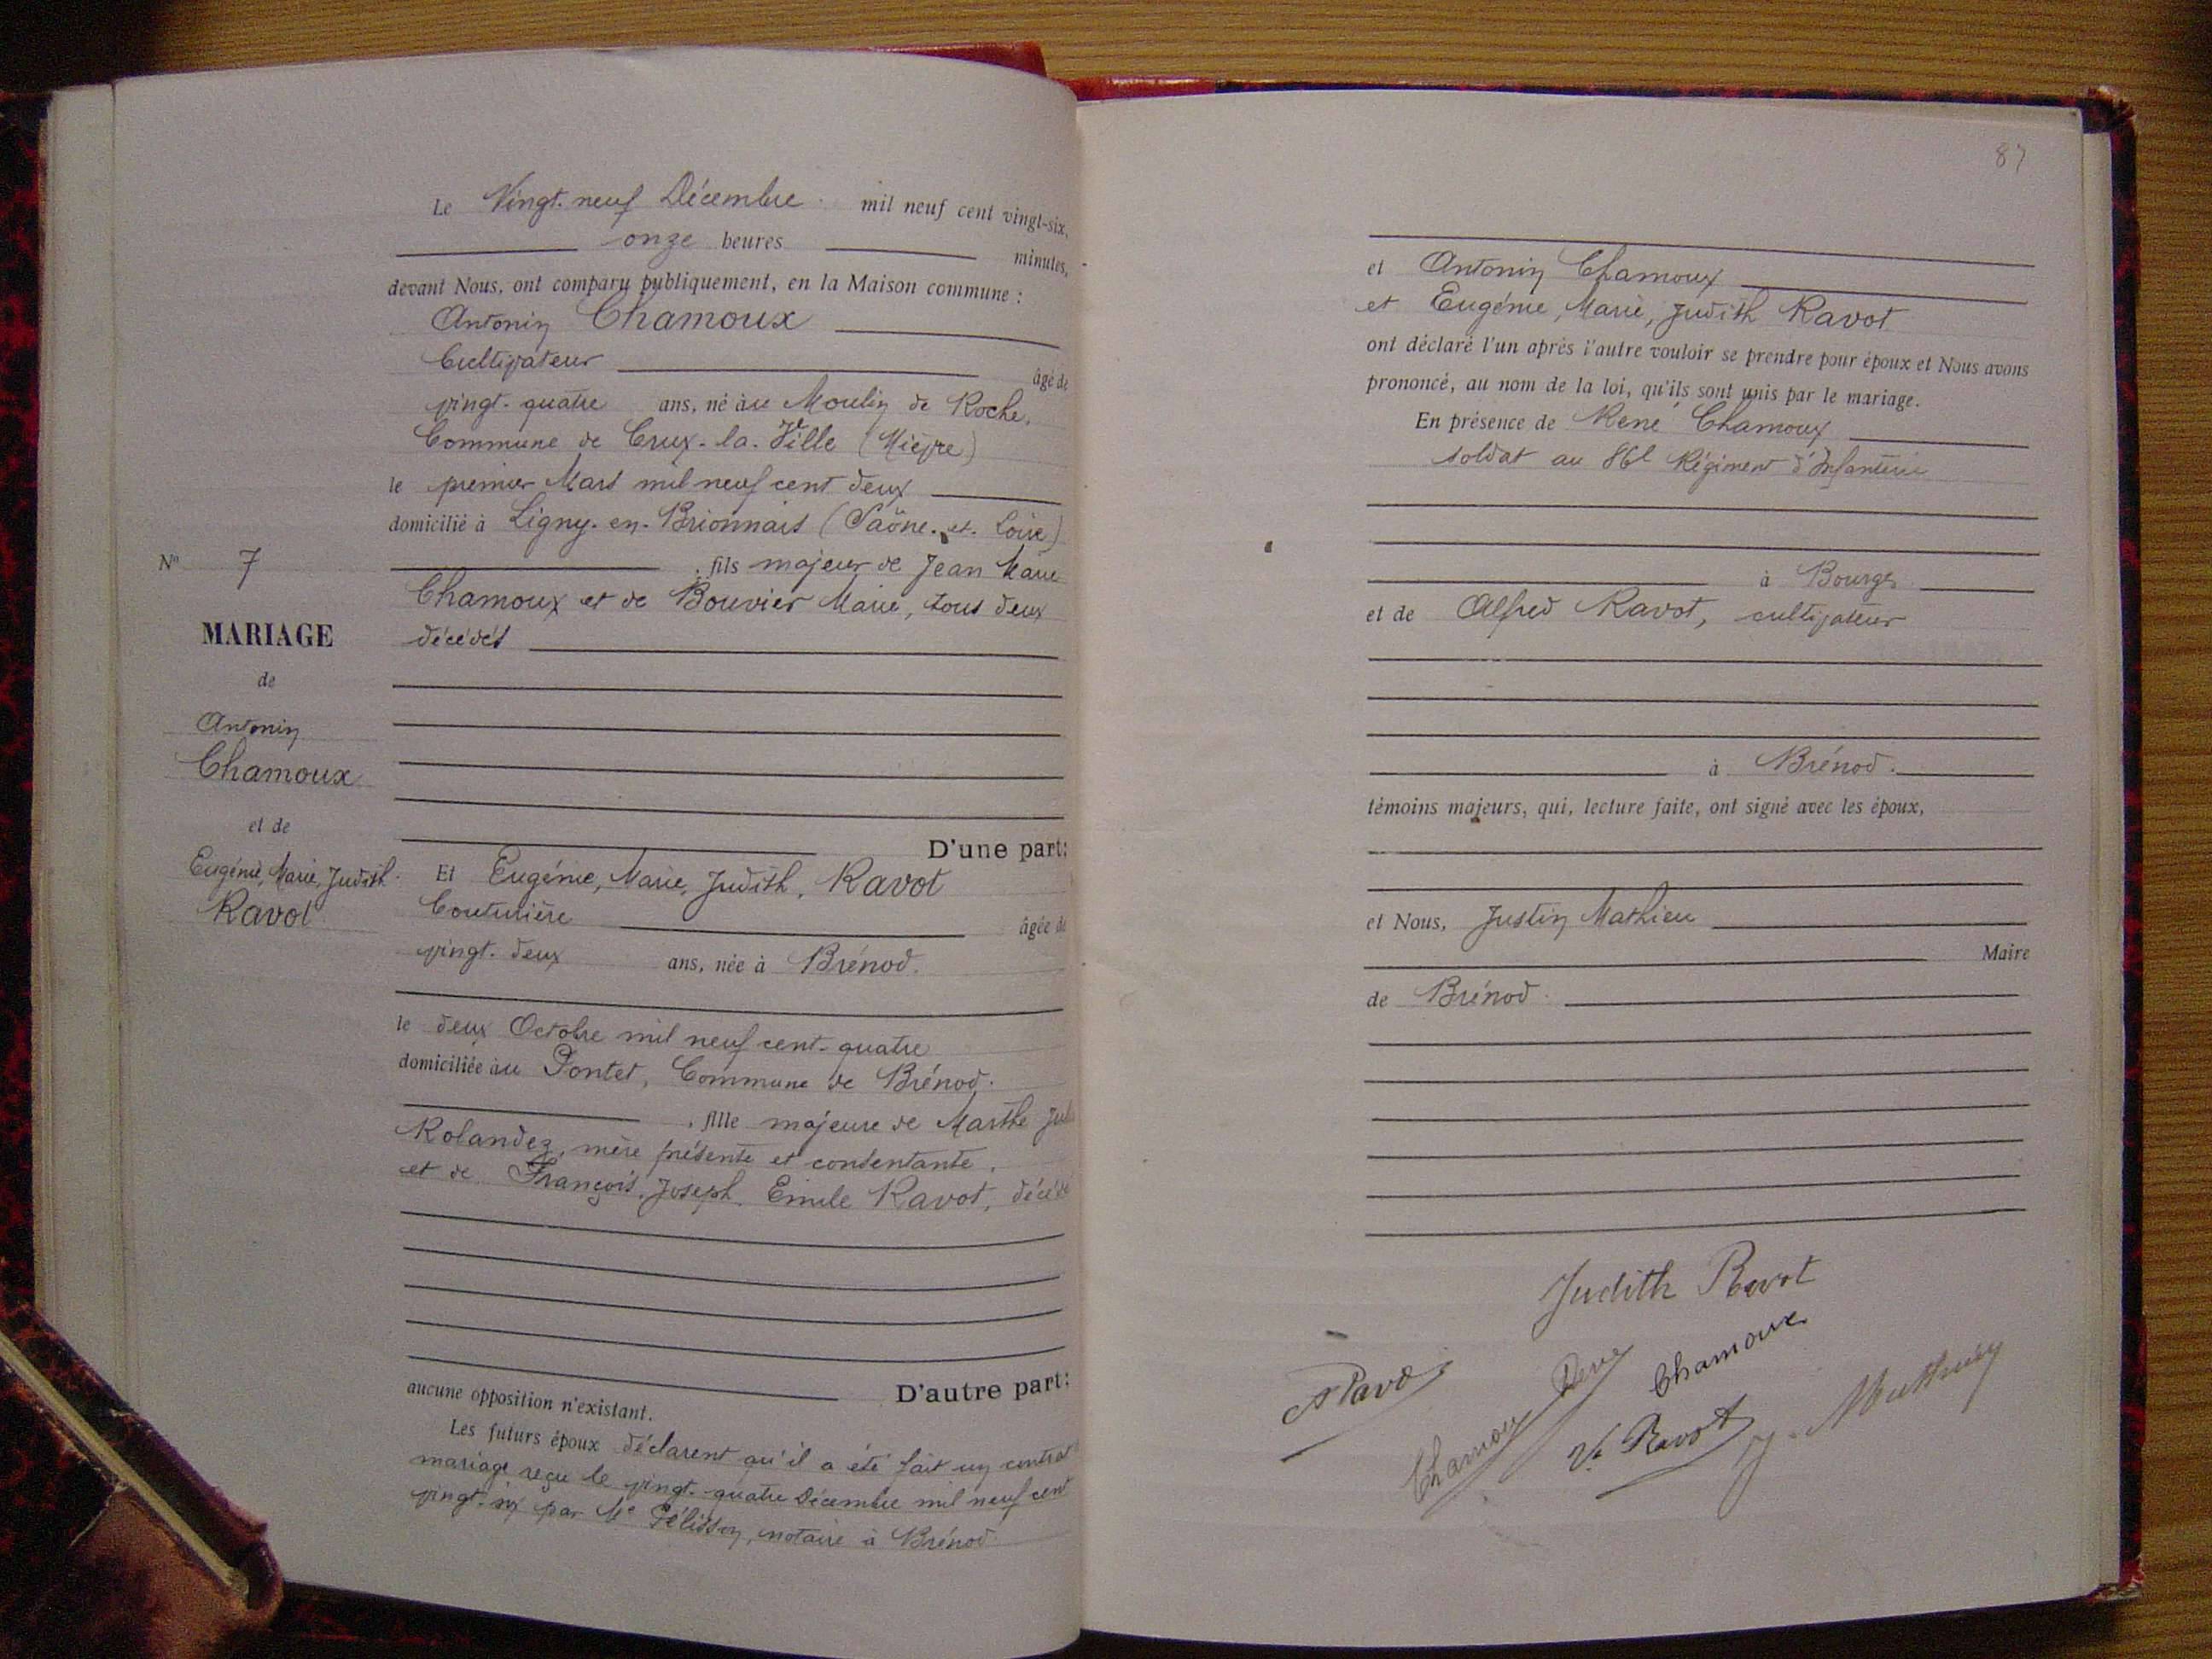 Le Vingt-neuf Décembre mil neuf cent vingt-six,
onze heures minutes,
devant Nous, ont comparu publiquement, en la Maison commune :
Antonin Chamoux
Cultivateur âgé de
vingt-quatre ans, né àu Moulin de Roche,
Commune de Crux-la-Ville (Nièvre)
le premier Mars mil neuf cent deux
domicilié à Ligny-en-Brionnais (Saône-et-Loire)
, fils majeur de Jean Marie
Chamoux et de Bouvier Marie, tous deux
décédés
D'une part;
Et Eugénie, Marie, Judith, Ravot
Couturière âgée de
vingt-deux ans, née à Brénod.
le deux Octobre mil neuf cent-quatre
domiciliée àu Pontet, Commune de Brénod.
, fille majeure de Marthe
Rolandez, mère présente et consentante,
et de François, Joseph, Emile Ravot, décédé
D'autre part;
aucune opposition n'existant.
Les futurs époux déclarent qu'il a été fait un contrat
mariage reçu le vingt-quatre Décembre mil neuf cent
vingt-six par Me Pélisson, notaire à Brénod
No 7
MARIAGE
de
Antonin
Chamoux
et de
Eugénie, Marie, Judith
Ravot
87
et Antonin Chamoux
et Eugénie, Marie, Judith Ravot
ont déclaré l'un après l'autre vouloir se prendre pour époux et Nous avons
prononcé, au nom de la loi, qu'ils sont unis par le mariage.
En présence de René Chamoux
soldat au Régiment d'Infanterie
à Bourges
et de Alfred Ravot, cultivateur
à Brénod.
témoins majeurs, qui, lecture faite, ont signé avec les époux,
et Nous, Justin Mathieu
Maire
de Brénod.
Judith Ravot
A Ravot
Chamoux René
Chamoux
Ve Ravot
J. Mathieu